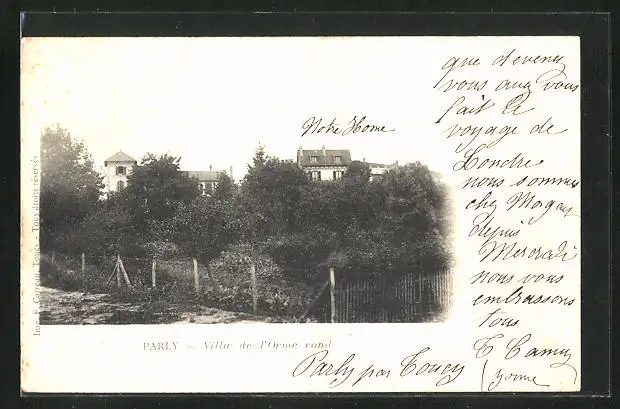 que devenez
vous avez vous
fait le
voyage de
Londre
nous sommes
chez
depuis
Mercredi
nous vous
embrassons
tous
Notre Home
Imp. F. Toucy - Tous droits réservés
PARLY — Villa de l'Orme rond
Parly par Toucy
(Yonne